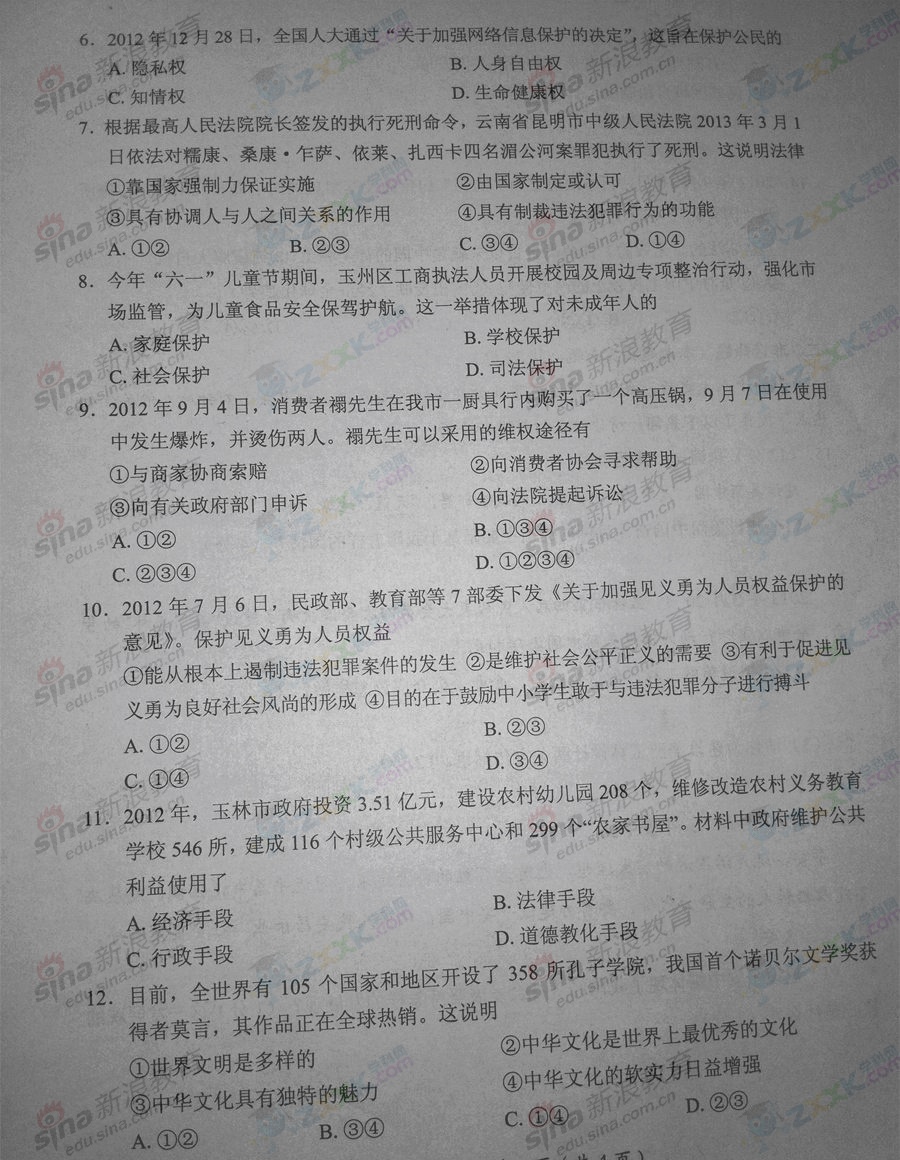 6. 2012 年 12 月 28 日，全国人大通过“关于加强网络信息保护的决定”，这旨在保护公民的
A. 隐私权 B. 人身自由权
C. 知情权 D. 生命健康权
7. 根据最高人民法院院长签发的执行死刑命令，云南省昆明市中级人民法院 2013 年 3 月 1
日依法对糯康、桑康·乍萨、依莱、扎西卡四名湄公河案罪犯执行了死刑。这说明法律
①靠国家强制力保证实施 ②由国家制定或认可
③具有协调人与人之间关系的作用 ④具有制裁违法犯罪行为的功能
A. ①② B. ②③ C. ③④ D. ①④
8. 今年“六一”儿童节期间，玉州区工商执法人员开展校园及周边专项整治行动，强化市
场监管，为儿童食品安全保驾护航。这一举措体现了对未成年人的
A. 家庭保护 B. 学校保护
C. 社会保护 D. 司法保护
9. 2012 年 9 月 4 日，消费者禤先生在我市一厨具行内购买了一个高压锅，9 月 7 日在使用
中发生爆炸，并烫伤两人。禤先生可以采用的维权途径有
①与商家协商索赔 ②向消费者协会寻求帮助
③向有关政府部门申诉 ④向法院提起诉讼
A. ①② B. ①③④
C. ②③④ D. ①②③④
10. 2012 年 7 月 6 日，民政部、教育部等 7 部委下发《关于加强见义勇为人员权益保护的
意见》。保护见义勇为人员权益
①能从根本上遏制违法犯罪案件的发生 ②是维护社会公平正义的需要 ③有利于促进见
义勇为良好社会风尚的形成 ④目的在于鼓励中小学生敢于与违法犯罪分子进行搏斗
A. ①② B. ②③
C. ①④ D. ③④
11. 2012 年，玉林市政府投资 3.51 亿元，建设农村幼儿园 208 个，维修改造农村义务教育
学校 546 所，建成 116 个村级公共服务中心和 299 个“农家书屋”。材料中政府维护公共
利益使用了
A. 经济手段 B. 法律手段
C. 行政手段 D. 道德教化手段
12. 目前，全世界有 105 个国家和地区开设了 358 所孔子学院，我国首个诺贝尔文学奖获
得者莫言，其作品正在全球热销。这说明
①世界文明是多样的 ②中华文化是世界上最优秀的文化
③中华文化具有独特的魅力 ④中华文化的软实力日益增强
A. ①② B. ③④ C. ①④ D. ②③
页（共 4 页）
sina 新浪教育
edu.sina.com.cn
ZXXK.com